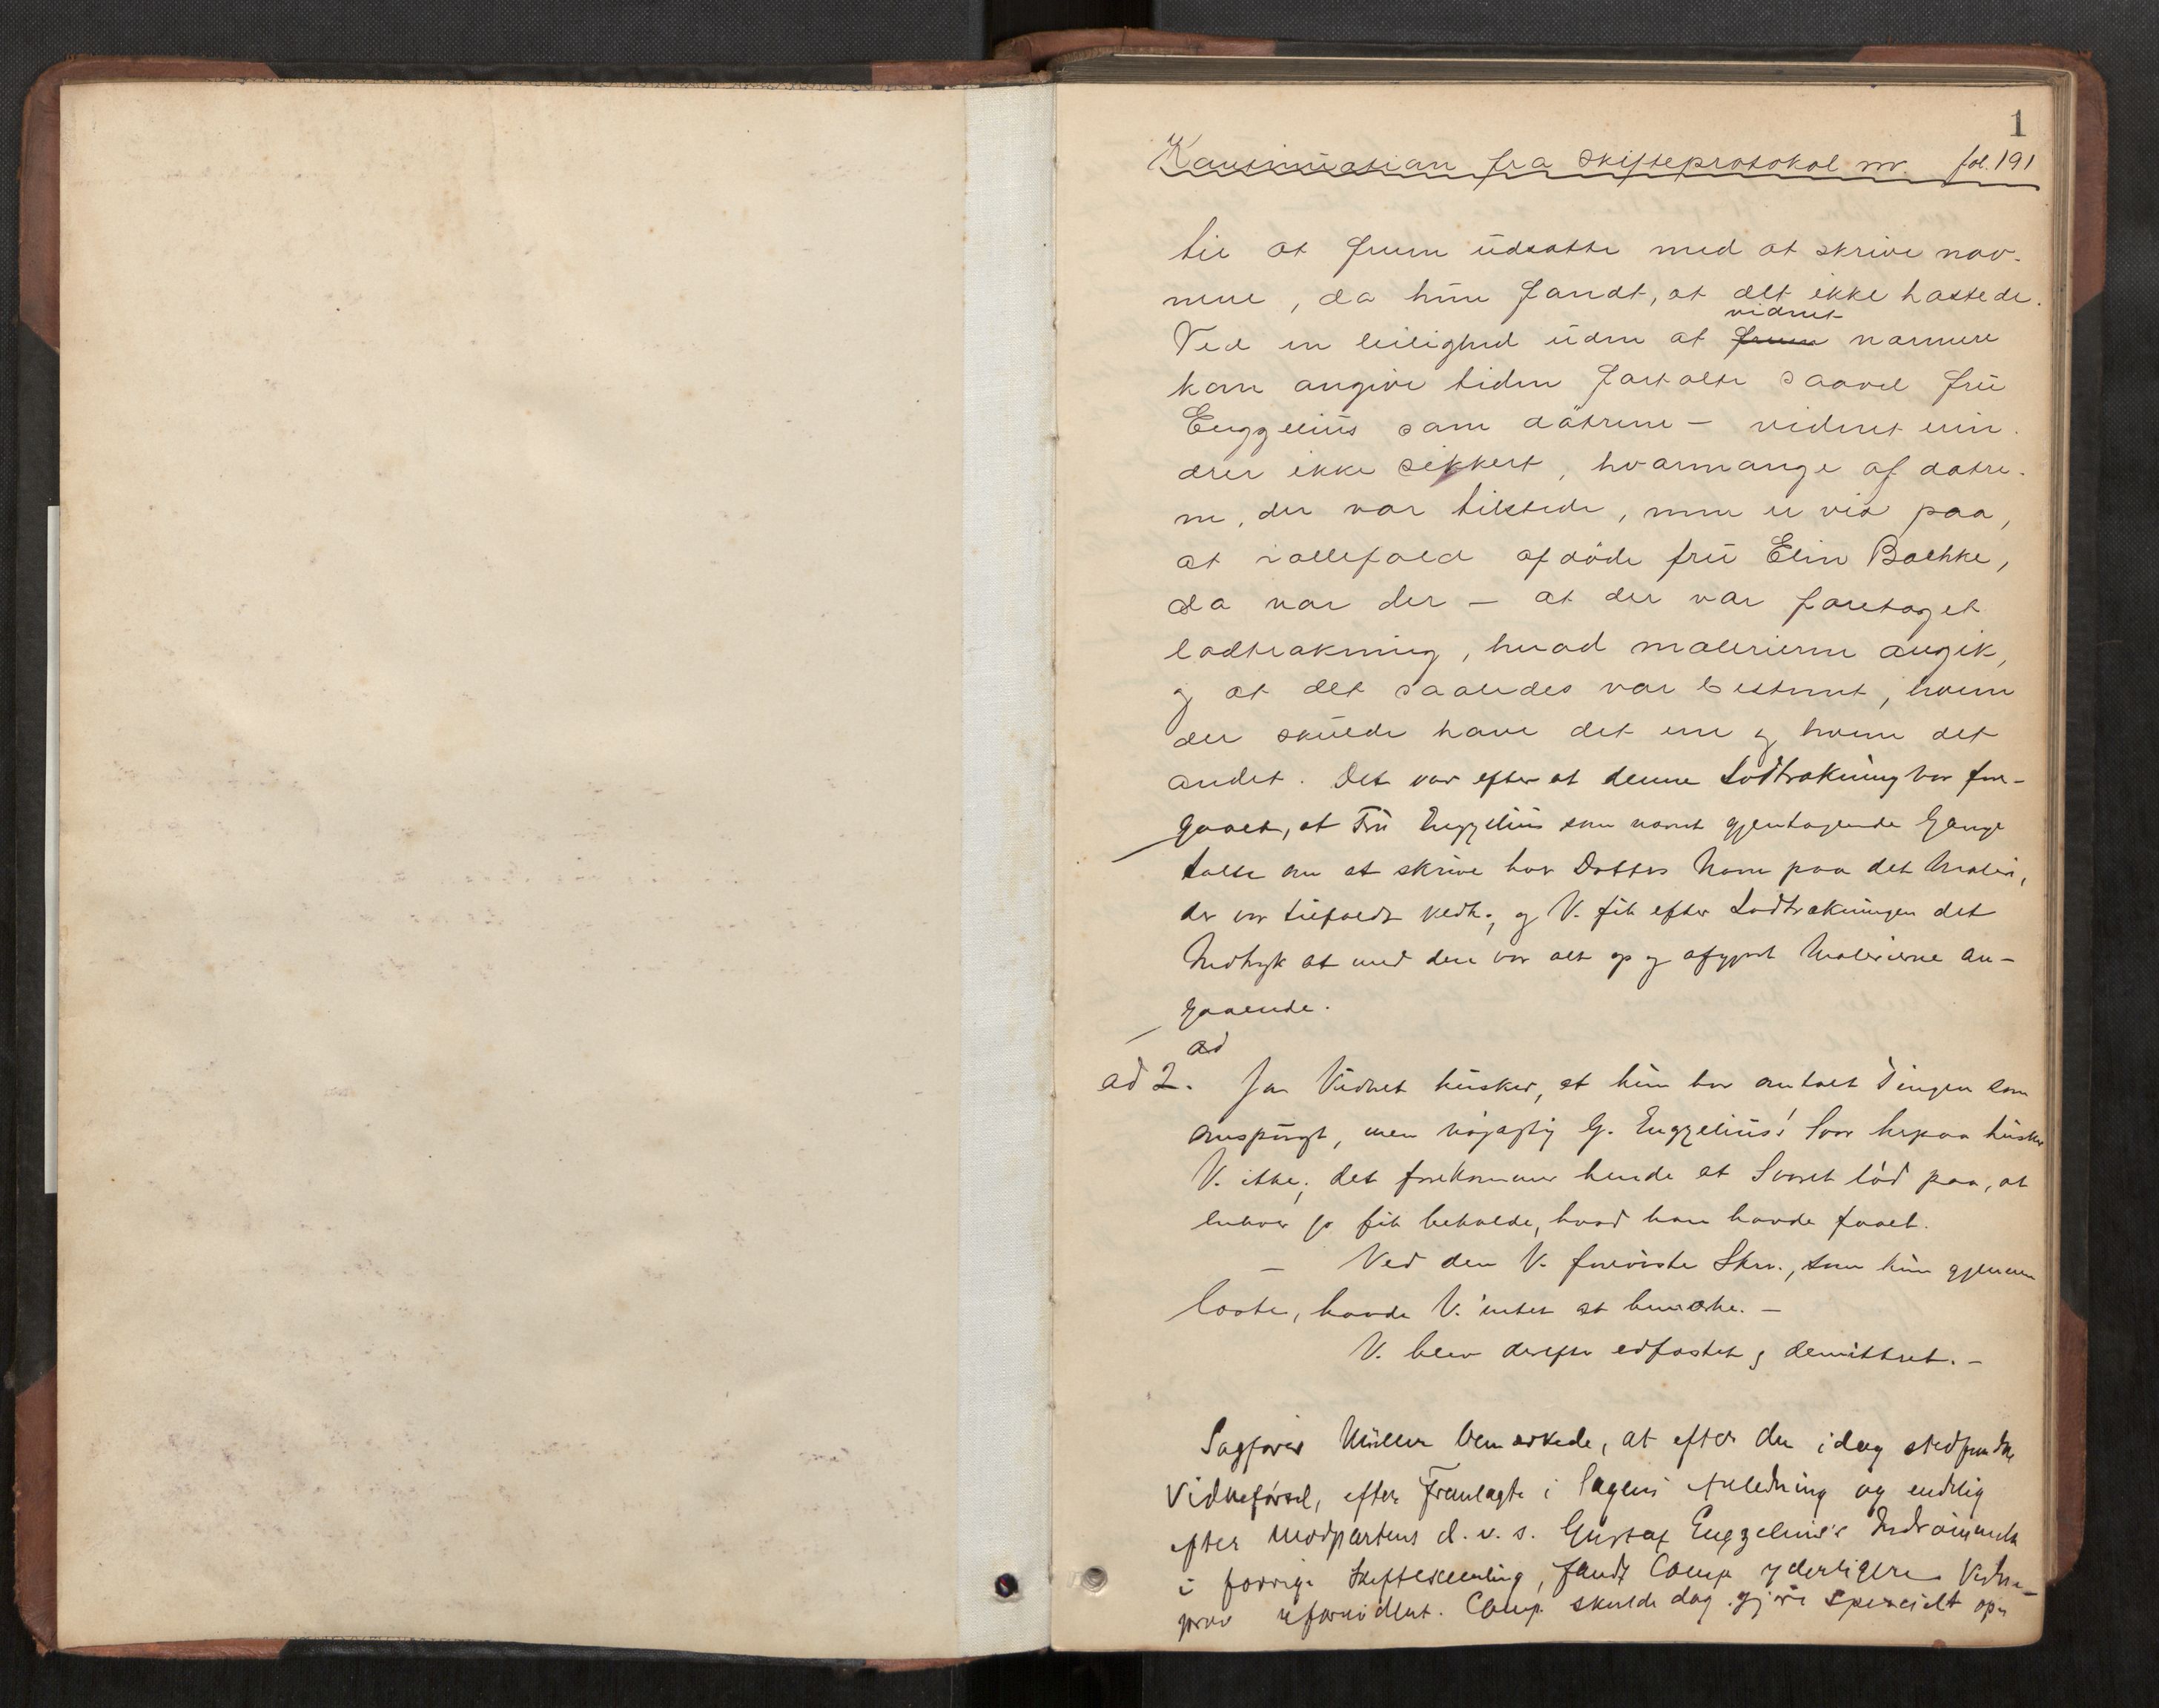 1
Kontinuation fra Skifteprotokol nr. fol. 191
til at fruen udsatte med at skrive nav-
nene, da hun fandt, at det ikke hastede.
vidnet
Ved en leilighed uden at fruen nærmere
kan angive tiden fortalte saavel fru
Enggelius som døtrene – vidnet erin-
drer ikke sikkert, hvormange af døtre-
ne, der var tilstede, men er vis paa,
at iallefald afdøde fru Elin Boehke,
da var der – at der var foretaget
lodtrækning, hvad malerierne angik,
og at det saaledes var bestemt, hvem
der skulde have det ene og hvem det
andet. Det var efter at denne Lodtrækning var fore-
gaaet, at Fru Enggelius som nævnt gjentagende Gange
talte om at skrive hver Datters Navn paa det Maleri,
der var tilfaldt vedk., og V. fik efter Lodtrækningen det
Indtryk at med den var alt op og afgjort Malerierne an-
gaaende.
ad
ad 2. Ja Vidnet husker, at hun har omtalt Tingen som
omspurgt, men nøjagtig G. Enggelius' Svar herpaa husker
V. ikke; det forekommer hende at Svaret lød paa, at
enhver jo fik beholde, hvad han havde faaet.
– Ved den V. foreviste Skr., som hun gjennem
læste, havde V. intet at bemærke. –
V. blev derefter edfæstet og demitteret. –
Sagfører Müller bemærkede, at efter den idag stedfundne
Vidneførsel, efter Fremlagte i Sagens Anledning og endelig
efter Modpartens d. v. s. Gustaf Enggelius's Indrømmelse
i forrige Skiftesamling, fandt Comp. yderligere Vidne-
prov ufornødent. Comp. skulde dog gjøre specielt op-